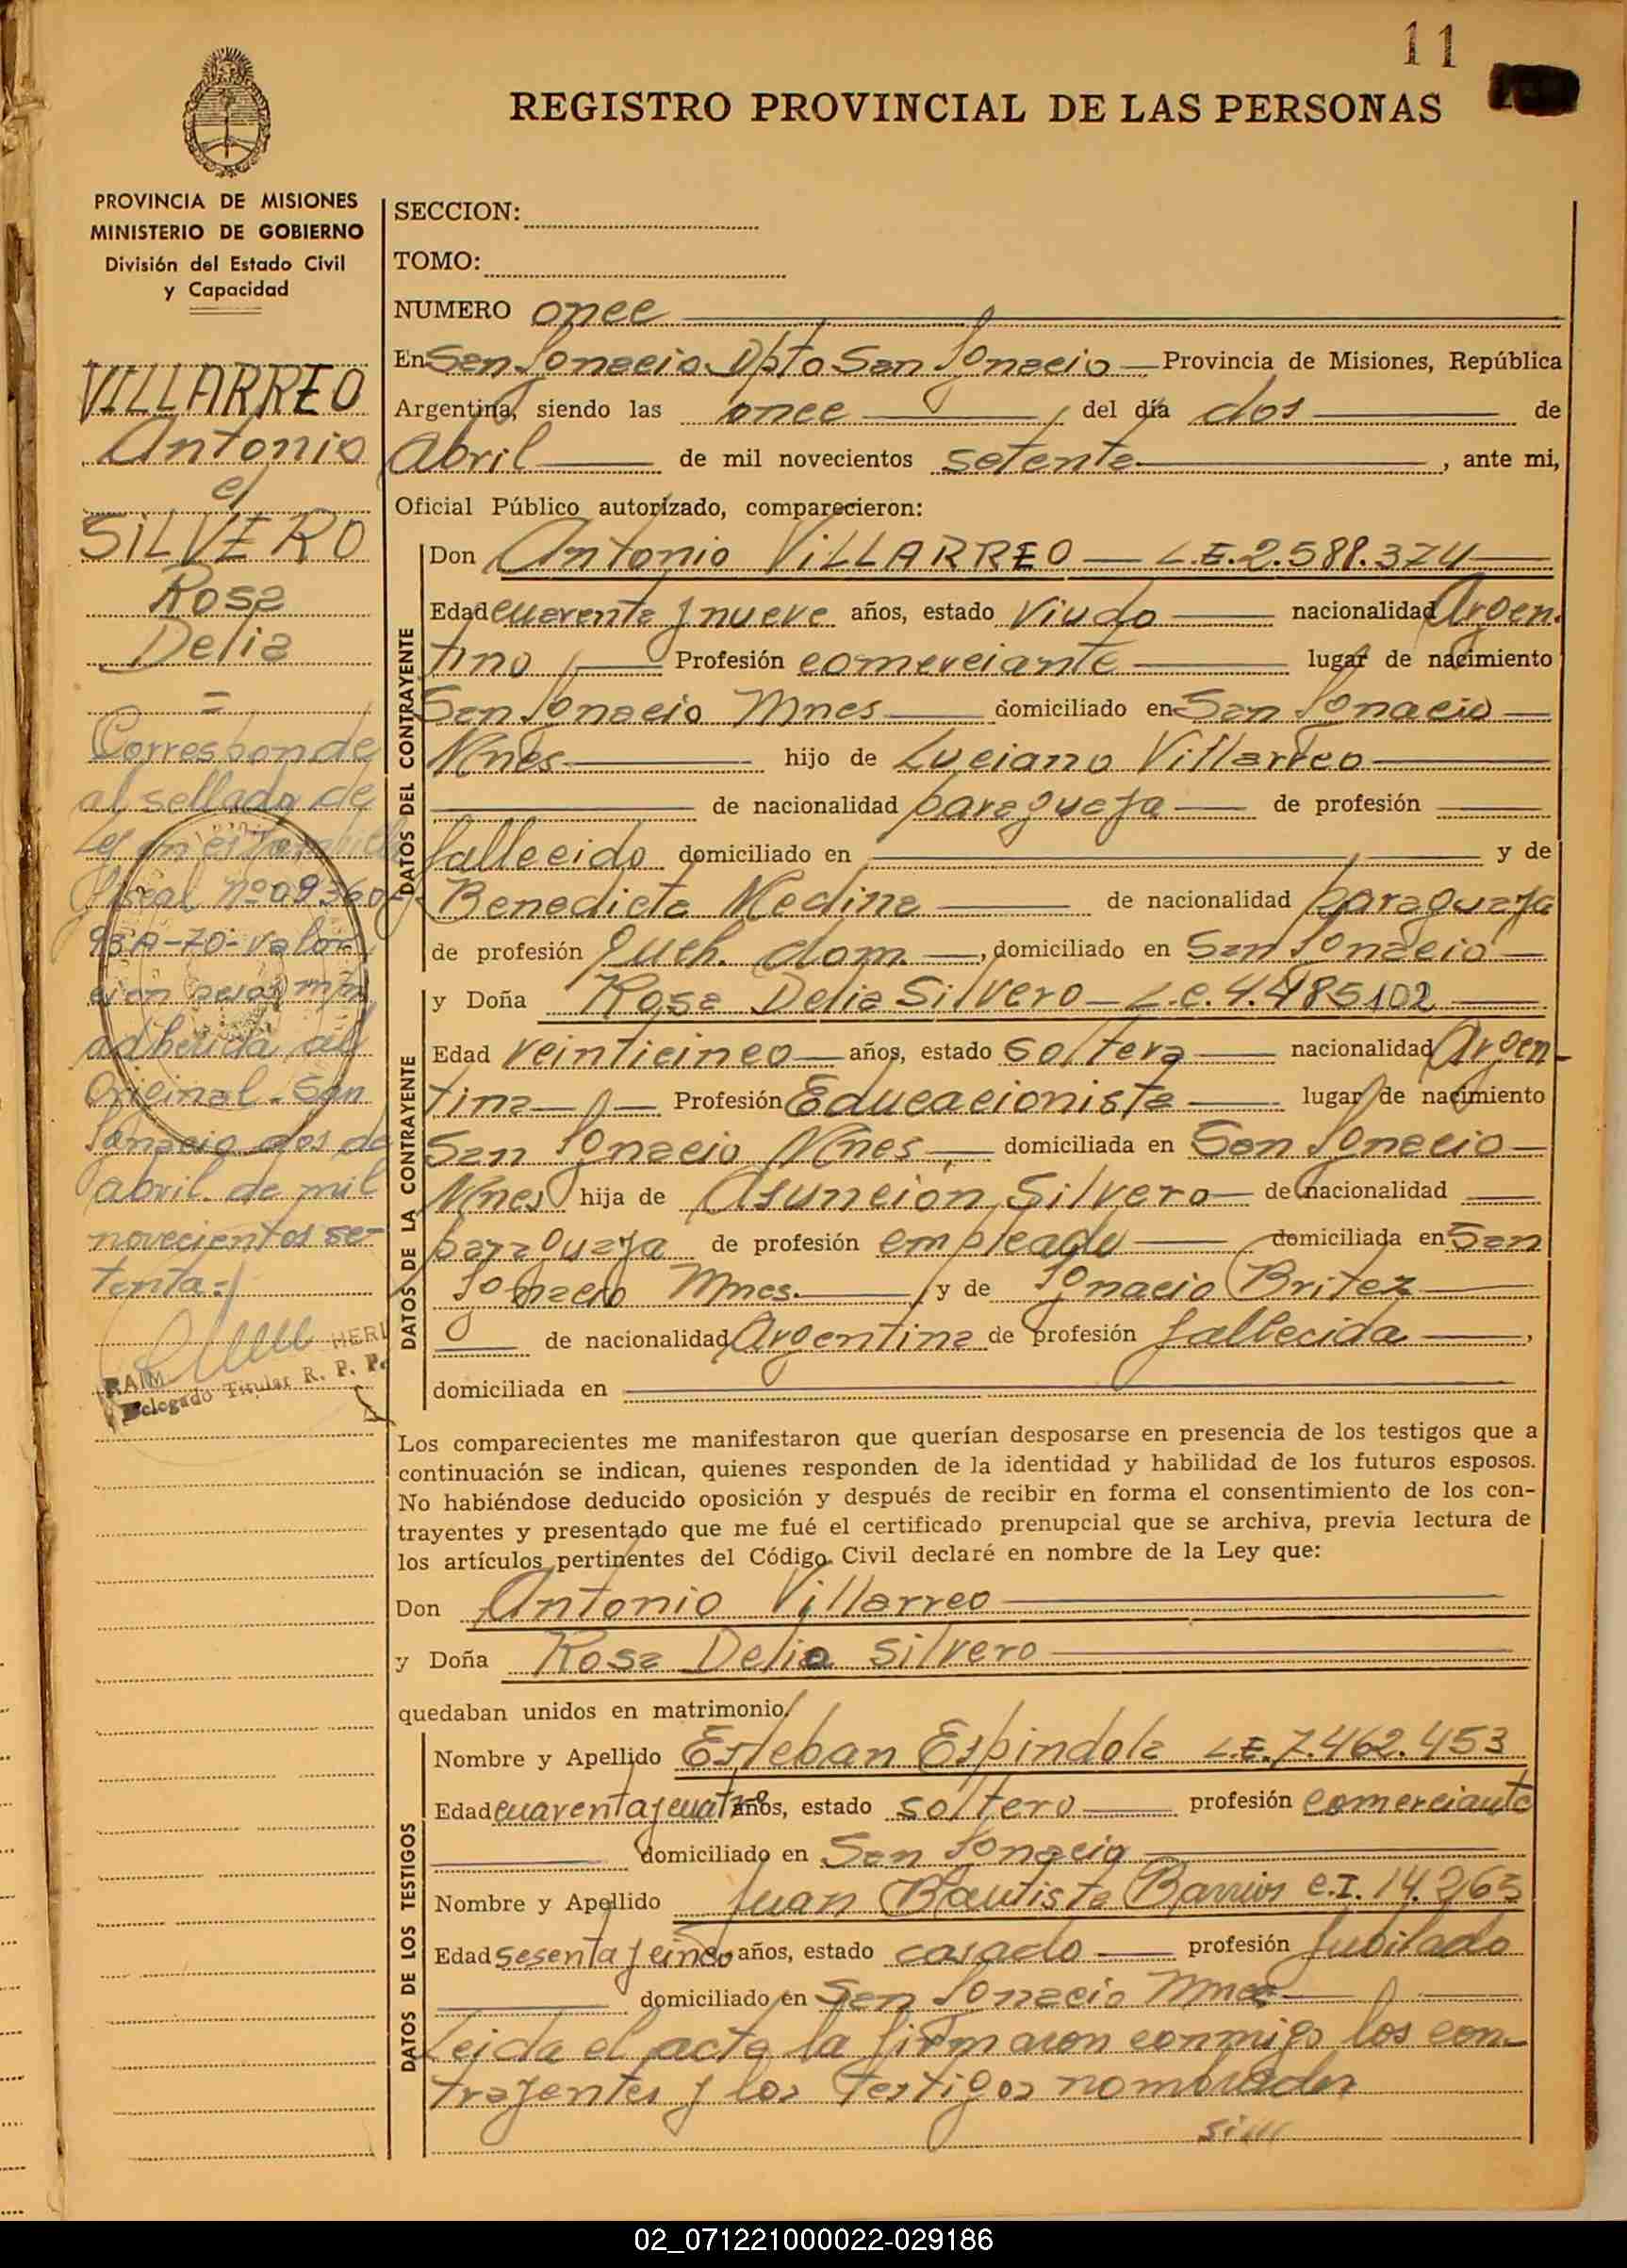 11
REGISTRO PROVINCIAL DE LAS PERSONAS
PROVINCIA DE MISIONES
MINISTERIO DE GOBIERNO
División del Estado Civil
y Capacidad
VILLARREO
Antonio
e/
SILVERO
Rosa
Delia
=
Corresponde
al sellado de
Ley en estampilla
fiscal nº 09360
93A-70- valor
cien pesos m/n
adherida al
Original. San
Ignacio dos de
abril de mil
novecientos se-
tenta=
RAIM MERL
Delegado Titular R. P. P.
SECCION:
TOMO:
NUMERO once
En San Ignacio Dpto San Ignacio — Provincia de Misiones, República
Argentina, siendo las once, del día dos de
Abril de mil novecientos setenta, ante mi,
Oficial Público autorizado, comparecieron:
DATOS DEL CONTRAYENTE
Don Antonio VILLARREO — L.E. 2.588.374
Edad cuarenta y nueve años, estado Viudo nacionalidad Argen.
tino Profesión comerciante lugar de nacimiento
San Ignacio Mnes domiciliado en San Ignacio
Mnes hijo de Luciano Villarreo
de nacionalidad paraguaya de profesión
fallecido domiciliado en y de
Benedicta Medina de nacionalidad paraguaya
de profesión Queh. dom. —, domiciliado en San Ignacio
DATOS DE LA CONTRAYENTE
y Doña Rosa Delia Silvero — L.C. 4.485102
Edad veinticinco años, estado soltera nacionalidad Argen-
tina Profesión Educacionista lugar de nacimiento
San Ignacio Mnes domiciliada en San Ignacio
Mnes hija de Asunción Silvero de nacionalidad
paraguaya de profesión empleado domiciliada en San
Ignacio Mnes. y de Ignacio Britez
de nacionalidad Argentina de profesión fallecida,
domiciliada en
Los comparecientes me manifestaron que querían desposarse en presencia de los testigos que a
continuación se indican, quienes responden de la identidad y habilidad de los futuros esposos.
No habiéndose deducido oposición y después de recibir en forma el consentimiento de los con-
trayentes y presentado que me fué el certificado prenupcial que se archiva, previa lectura de
los artículos pertinentes del Código Civil declaré en nombre de la Ley que:
Don Antonio Villarreo
y Doña Rosa Delia Silvero
quedaban unidos en matrimonio
DATOS DE LOS TESTIGOS
Nombre y Apellido Esteban Espindola L.E. 7.462.453
Edad cuarenta y cuatro años, estado soltero profesión comerciante
domiciliado en San Ignacio
Nombre y Apellido Juan Bautista Barrios C.I. 14.263
Edad sesenta y cinco años, estado casado profesión jubilado
domiciliado en San Ignacio Mnes
Leida el acta la firmaron conmigo los con-
trayentes y los testigos nombrados
02_071221000022-029186